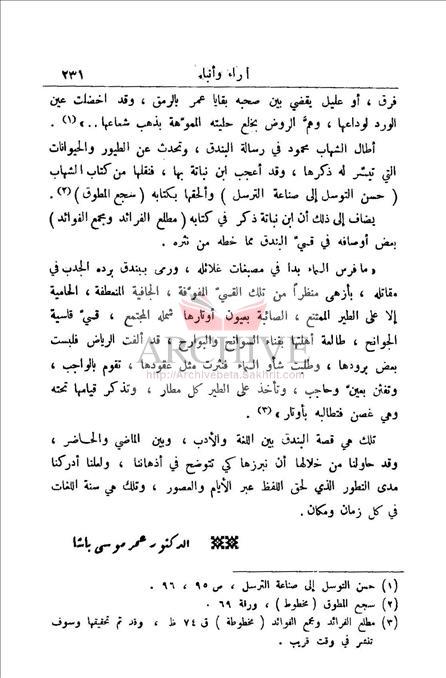 آراء وأنباء ٢٣١
فرق ، أو عليل يقضي بين صحبه بقايا عمر بالرمق ، وقد اخضلت عين
الورد لوداعها ، وهمَّ الروض بخلع حليته المموّهة بذهب شعاعها .. » (١) .
أطال الشهاب محمود في رسالة البندق ، وتحدث عن الطيور والحيوانات
التي تيسّر له ذكرها ، وقد أعجب ابن نباتة بها ، فنقلها من كتاب الشهاب
( حسن التوسل إلى صناعة الترسل ) وألحقها بكتابه ( سجع المطوق ) (٢) .
يضاف إلى ذلك أن ابن نباتة ذكر في كتابه ( مطلع الفرائد ومجمع الفوائد )
بعض أوصافه في قسيّ البندق مما خطه من نثره .
« ما قرس السماء بدا في مصبغات غلائله ، ورمى ببندق برده الجدب في
مقاتله ، بأزهى منظراً من تلك القسيّ المفوّفة ، الجافية المنعطفة ، الحامية
إلا على الطير الممتنع ، الصائبة بعيون أوتارها شمله المجتمع ، قسيّ قاسية
الجوانح ، طالعة أهلتها بقناء السوانح والبوارح ، قد ألفت الرياض فلبست
بعض برودها ، وطلبت شأو السماء فنثرت مثل عقودها ، تقوم بالواجب ،
وتفتن بعين وحاجب ، وتأخذ على الطير كل مطار ، وتذكر قيامها تحته
وهي غصن فتطالبه بأوتار » (٣) .
تلك هي قصة البندق بين اللغة والأدب ، وبين الماضي والحاضر ،
وقد حاولنا من خلالها أن نبرزها كي تتوضح في أذهاننا ، ولعلنا أدركنا
مدى التطور الذي لحق اللفظ عبر الأيام والعصور ، وتلك هي سنة اللغات
في كل زمان ومكان .
الدكتور عمر موسى باشا
(١) حسن التوسل إلى صناعة الترسل ، ص ٩٥ ، ٩٦ .
(٢) سجع المطوق ( مخطوط ) ، ورقة ٦٩ .
(٣) مطلع الفرائد ومجمع الفوائد ( مخطوطة ) ق ٧٤ ظ ، وقد تم تحقيقها وسوف
تنشر في وقت قريب .
ARCHIVE
http://Archivebeta.Sakhrit.com